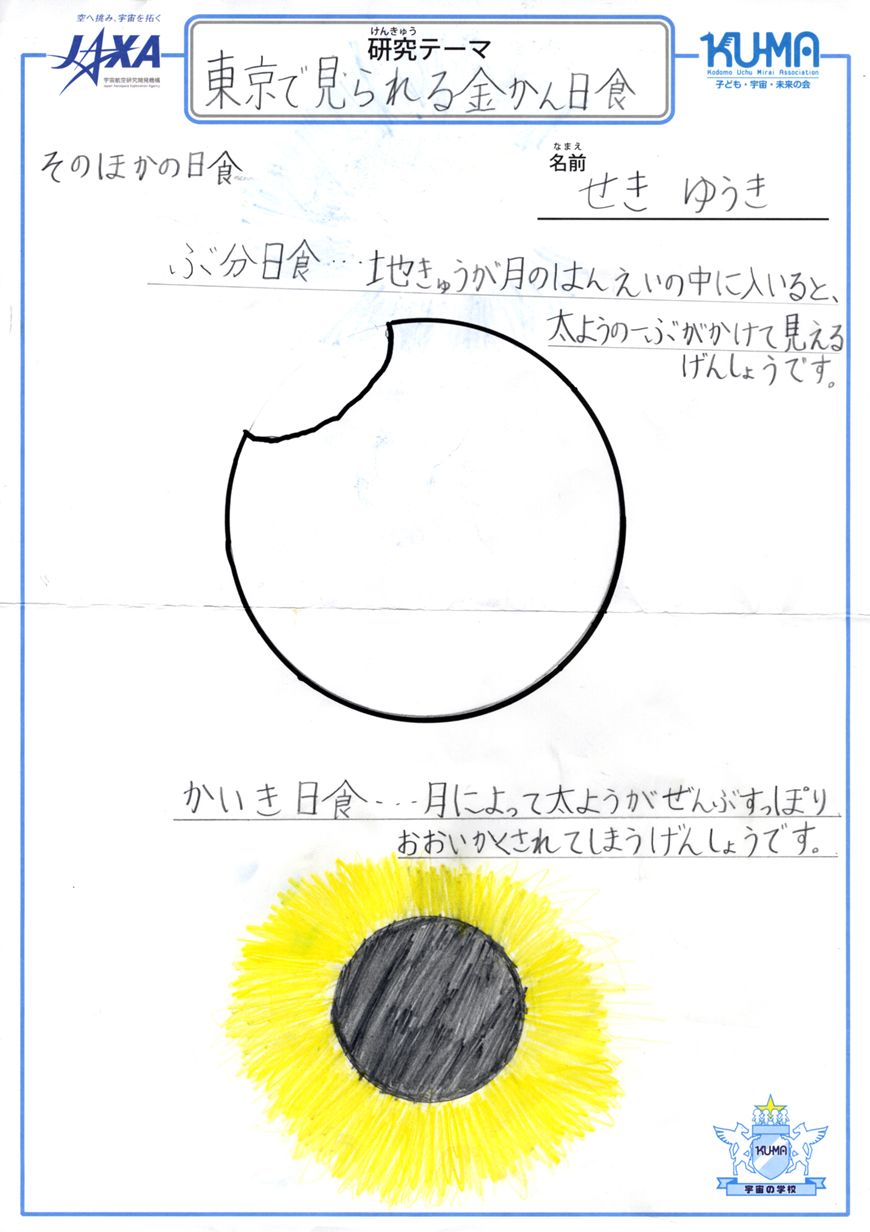 空へ挑み、宇宙を拓く
JAXA
宇宙航空研究開発機構
Japan Aerospace Exploration Agency
けんきゅう
研究テーマ
東京で見られる金かん日食
KU-MA
Kodomo Uchu Mirai Association
子ども・宇宙・未来の会
そのほかの日食
なまえ
名前
せき ゆうき
ぶ分日食…地きゅうが月のはんえいの中に入いると、
太ようの一ぶがかけて見える
げんしょうです。
かいき日食…月によって太ようがぜんぶすっぽり
おおいかくされてしまうげんしょうです。
KU-MA
宇宙の学校